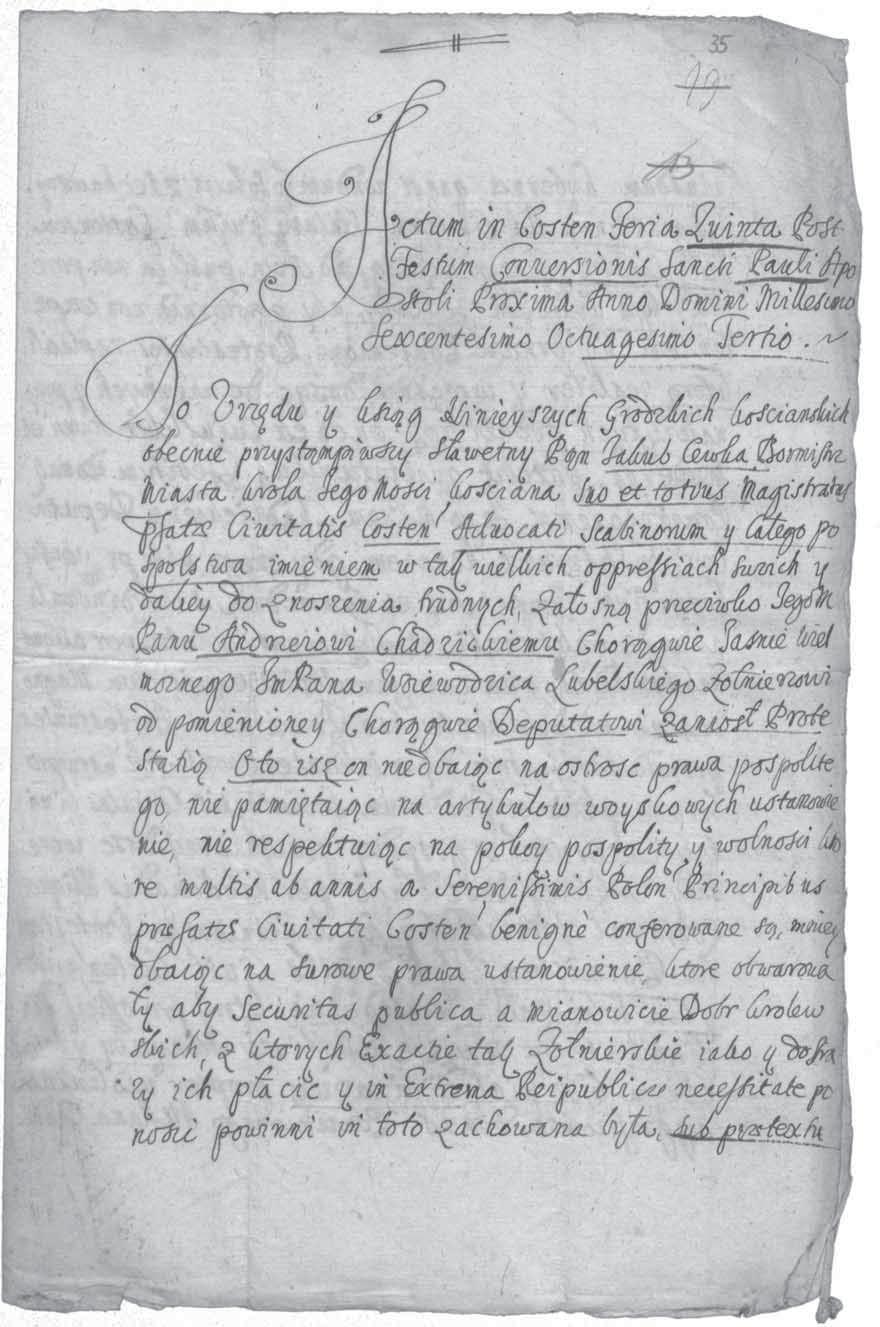 35
19
13
Actum in Costen Feria Quinta Post
Festum Conversionis Sancti Pauli Apo
stoli Proxima Anno Domini Millesimo
Sexcentesimo Octuagesimo Tertio.
Do Vrzędu y ksiąg Ninieyszych Grodzkich kosciańskich
obecnie przystąmpiwszy Sławetny Pąn Jakub Cewka Bormistrz
miasta krola Jego Mosci kosciana Suo et totius Magistratus
pfatæ Ciuitatis Costen Aduocati Scabinorum y Całego po
spolstwa imieniem w tak wielkich oppressiach swich y
daliey do znoszenia trudnych, żałosną przeciwko Jego M
Panu Andrzeiowi Chądzickiemu Chorągwie Jasnie Wiel
możnego JmPana Woiewodzica Lubelskiego Żołnierzowi
od pomienioney Chorągwie Deputatowi zaniosł Prote
statią Oto isz on niedbaiąc na ostrosc prawa pospolite
go, nie pamiętaiąc na artykułow woyskowych ustanowie
nie, nie respektuiąc na pokoy pospolity y wolnosci kto
re multis ab annis a Serenissimis Polon Principibus
præfatæ Ciuitati Costen benignè conferowane są, mniey
dbaiąc na surowe prawa ustanowienie, ktore obwarowa
ły aby Securitas publica a mianowicie Dobr krolew
skich, z ktorych Exactie tak Żołnierskie iako y dosta
ły ich płacic y in Extrema Reipublicæ necessitate po
nosic powinni in toto zachowana była, sub prætextu